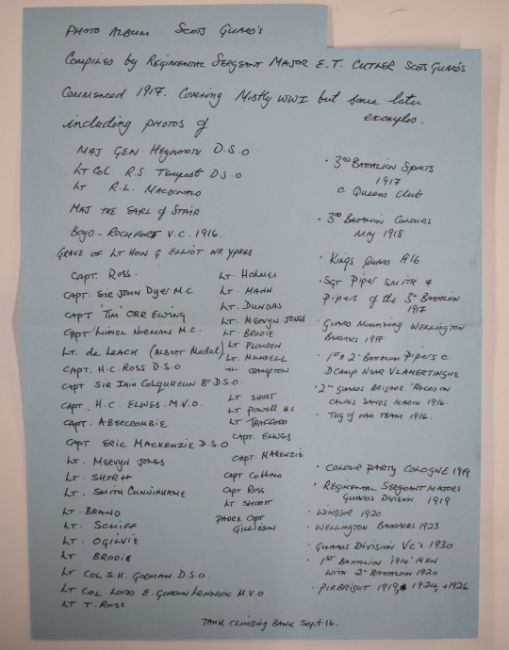 PHOTO ALBUM SCOTS GUARD'S
Compiled by REGIMENTAL SERGEANT MAJOR E.T. CUTLER SCOTS GUARDS
Commenced 1917. Covering Mostly WWI but some later
examples.
including photos of
MAJ GEN HEYWORTH D.S.O
LT COL R.S. TEMPEST D.S.O
LT R.L. MACDONALD
MAJ THE EARL OF STAIR
BOYD-ROCHFORT V.C. 1916.
GRAVE OF LT HON G ELLIOT NR YPRES
CAPT. ROSS.
CAPT. SIR JOHN DYER M.C
CAPT 'TIM' ORR EWING
CAPT LIONEL NORMAN M.C.
LT. de LEACH (ALBERT MEDAL)
CAPT. H.C. ROSS D.S.O
CAPT SIR IAIN COLQUHOUN Bt D.S.O.
CAPT. H.C. ELWES. M.V.O.
CAPT. ABERCROMBIE
CAPT ERIC MACKENZIE D.S.O
LT. MERVYN JONES
LT. SHORTT
LT. SMITH CUNNINGHAME
LT. BRAND
LT. SCHIFF
LT. OGILVIE
LT BRODIE
LT COL S.H. GODMAN D.S.O.
LT COL LORD E. GORDON LENNOX M.V.O
LT T. ROSS
LT. HOLMES
LT. MANN
LT. DUNDAS
LT. MERVYN JONES
LT. BRODIE
LT PLOWDEN
LT. MUNDELL
" CRAMPTON
LT SHORT
LT POWELL MC
LT TRAFFORD
CAPT. ELWES
CAPT. MAKENZIE
CAPT
CAPT ROSS
LT SHORTT
PADRE CAPT
GILLIESON
· 3RD BATTALION SPORTS
1917
@ QUEENS CLUB
· 3RD BATTALION COLOURS
MAY 1918
· KINGS GUARD A/6
· SGT PIPER SMITH &
PIPERS OF THE 3RD BATTALION
1917
· GUARD MOUNTING WELLINGTON
BARRACKS 1917
· 1ST & 2ND BATTALION PIPERS @
D CAMP NEAR VLAMERTINGHE
· 2ND GUARDS BRIGADE RACES ON
CALAIS SANDS MARCH 1916.
· TUG OF WAR TEAM 1916.
· COLOUR PARTY COLOGNE 1919
· REGIMENTAL SERGEANT MAJORS
GUARDS DIVISION 1919
· WINDSOR 1920
· WELLINGTON BARRACKS 1923
· GUARDS DIVISION VC's 1930
· 1ST BATTALION '1914' MEN
WITH 2ND BATTALION 1920
· PIRBRIGHT 1919, 1924, + 1926
TANK CLIMBING BANK SEPT 16.